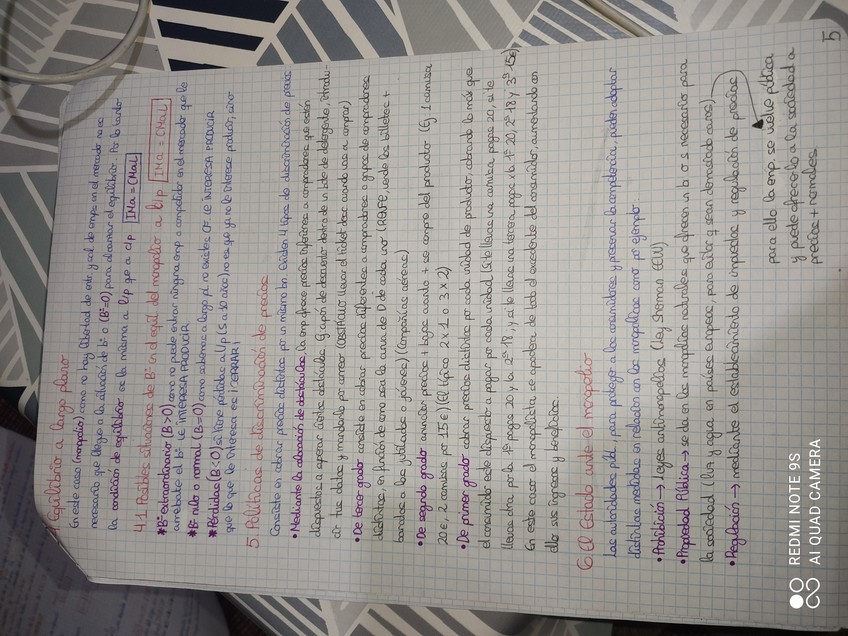 4. Equilibrio a largo plazo
En este caso (monopolio) como no hay libertad de entr. y sal. de emps en el mercado no es
necesario que llegue a la situación de bº 0 (B=0) para alcanzar el equilibrio. Por lo tanto
la condición de equilibrio es la misma a l/p que a c/p IMa = CMaL
4.1 Posibles situaciones de Bº en el equil. del monopolio a l/p IMa = CMaL
*Bº extraordinario (B>0) como no puede entrar ninguna emp a competir en el mercado que le
arrebate el Bº LE INTERESA PRODUCIR
*Bº nulo o normal (B=0) como sabemos a largo pl. no existen CF LE INTERESA PRODUCIR
*Pérdidas (B<0) si tiene pérdidas al l/p (5 a 10 años) no es que ya no le interese producir, sino
que lo que le interesa es ¡CERRAR!
5. Políticas de discriminación de precios
Consiste en cobrar precios distintos por un mismo bn. Existen 4 tipos de discriminación de precios
•Mediante la colocación de obstáculos, la emp ofrece precios inferiores a compradores que estén
dispuestos a superar ciertos obstáculos. Ej cupón de descuento dentro de un bote de detergente, introdu-
cir tus datos y mandarlo por correo (OBSTÁCULO llevar el ticket desc cuando vas a comprar)
•De tercer grado consiste en cobrar precios diferentes a compradores o grupos de compradores
distintos en función de como sea la curva de D de cada uno (RENFE, vende los billetes +
baratos a los jubilados o jóvenes) (Compañías aéreas)
•De segundo grado anunciar precios + bajos cuanto + se compre del producto (Ej 1 camisa
20€, 2 camisas por 15€) (El típico 2x1 o 3x2)
•De primer grado cobrar precios distintos por cada unidad de producto, cobrando lo máx que
el consumidor esté dispuesto a pagar por cada unidad (Si te llevas una camisa pagas 20, si te
llevas otra por la 1ª pagas 20 y la 2ª 18, y si te llevas una tercera pagas x la 1ª 20, 2ª 18 y 3ª 15€)
En este caso el monopolista se apodera de todo el excedente del consumidor, aumentando con
ello sus ingresos y beneficios.
6. El Estado ante el monopolio
Las autoridades púb., para proteger a los consumidores y preservar la competencia, pueden adoptar
distintas medidas en relación con los monopolios como por ejemplo:
•Prohibición → Leyes antimonopolios (Ley Sherman EEUU)
•Propiedad Pública → se da en los monopolios naturales que ofrecen un b o s necesario para
la sociedad (luz y agua en países europeos, para evitar q sean demasiado caros),
•Regulación → mediante el establecimiento de impuestos y regulación de precios
para ello la emp. se vuelve púb
y puede ofrecerlo a la sociedad a
precios + normales.
5
REDMI NOTE 9S
AI QUAD CAMERA